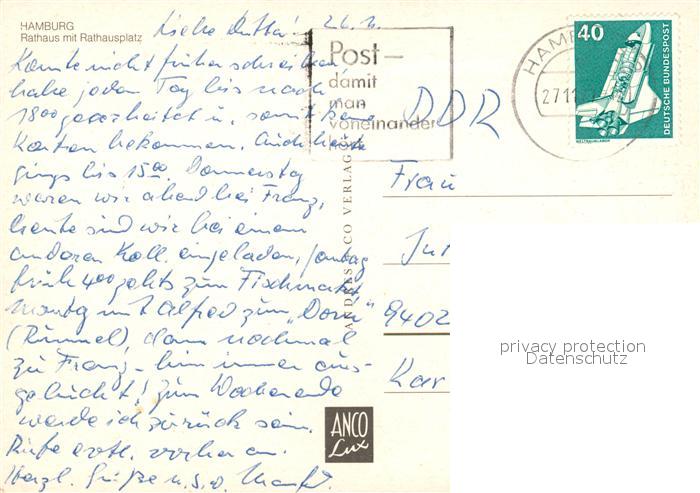 HAMBURG
Rathaus mit Rathausplatz
Liebe Mutti! 26. 11.
Konnte nicht früher schreiben,
habe jeden Tag bis nach
18 00 gearbeitet u. somit keine
Karten bekommen. Auch heute
gings bis 15 00. Donnerstag
waren wir abend bei Franz,
heute sind wir bei einem
anderen Koll. eingeladen, Sonntag
früh 4 00 gehts zum Fischmarkt
Montag mit Alfred zum "Dom"
(Rummel), dann nochmal
zu Franz - bin immer aus-
gebucht! Zum Wochenende
werde ich zurück sein.
Rufe evtl. vorher an.
Herzl. Grüße u.s.w. Manfr.
Post-
damit
man
voneinander
HAMB
27.11.
40
DEUTSCHE BUNDESPOST
WELTRAUMLABOR
DDR
Frau
9402
Kar
ANDRES + CO VERLAG
ANCO
Lux
privacy protection
Datenschutz